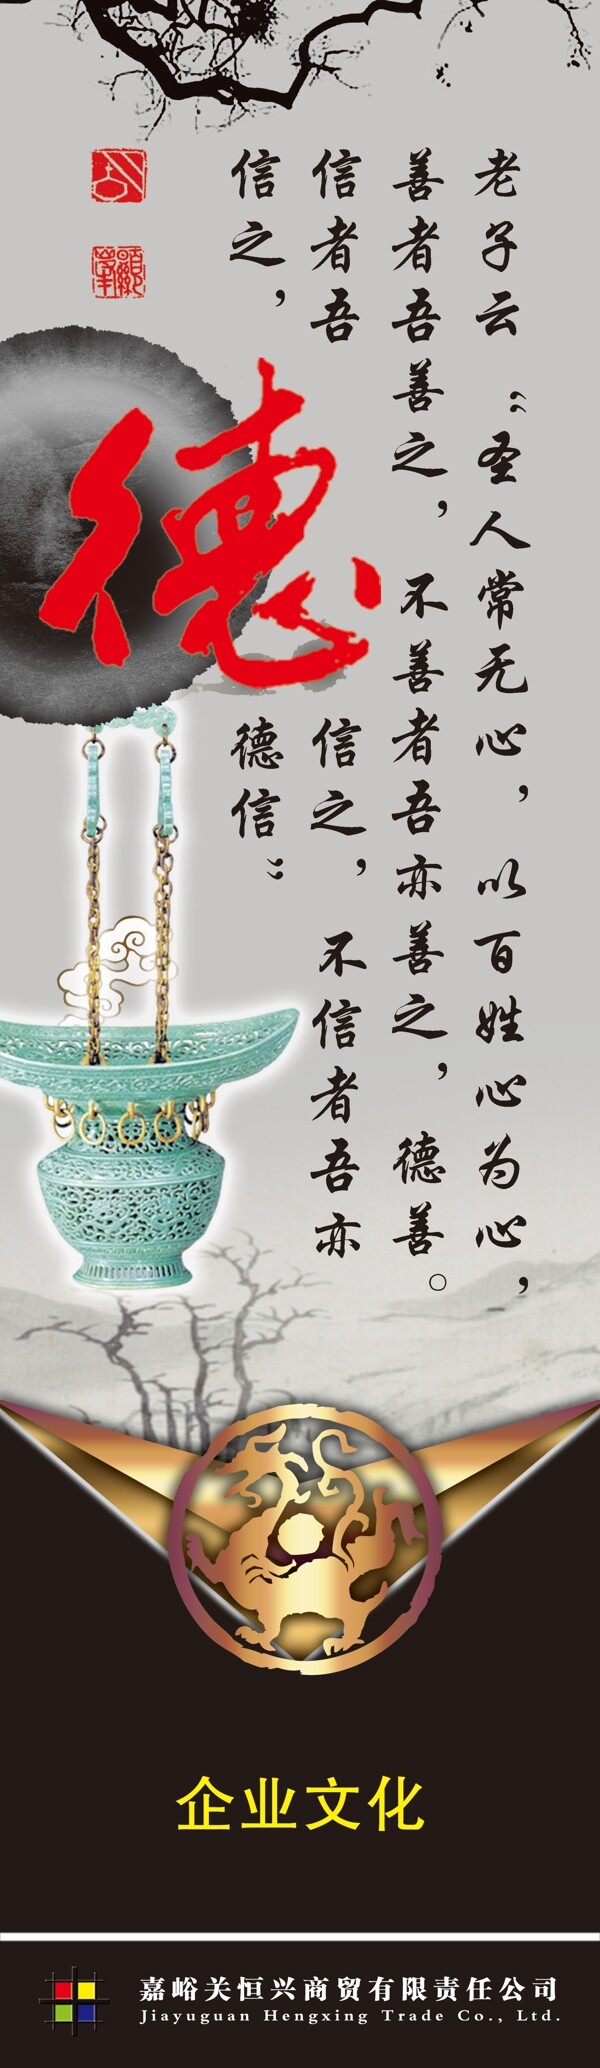 老子云“圣人常无心，以百姓心为心，
善者吾善之，不善者吾亦善之，德善。
信者吾信之，不信者吾亦
信之，德信”
德
企业文化
嘉峪关恒兴商贸有限责任公司
Jiayuguan Hengxing Trade Co., Ltd.